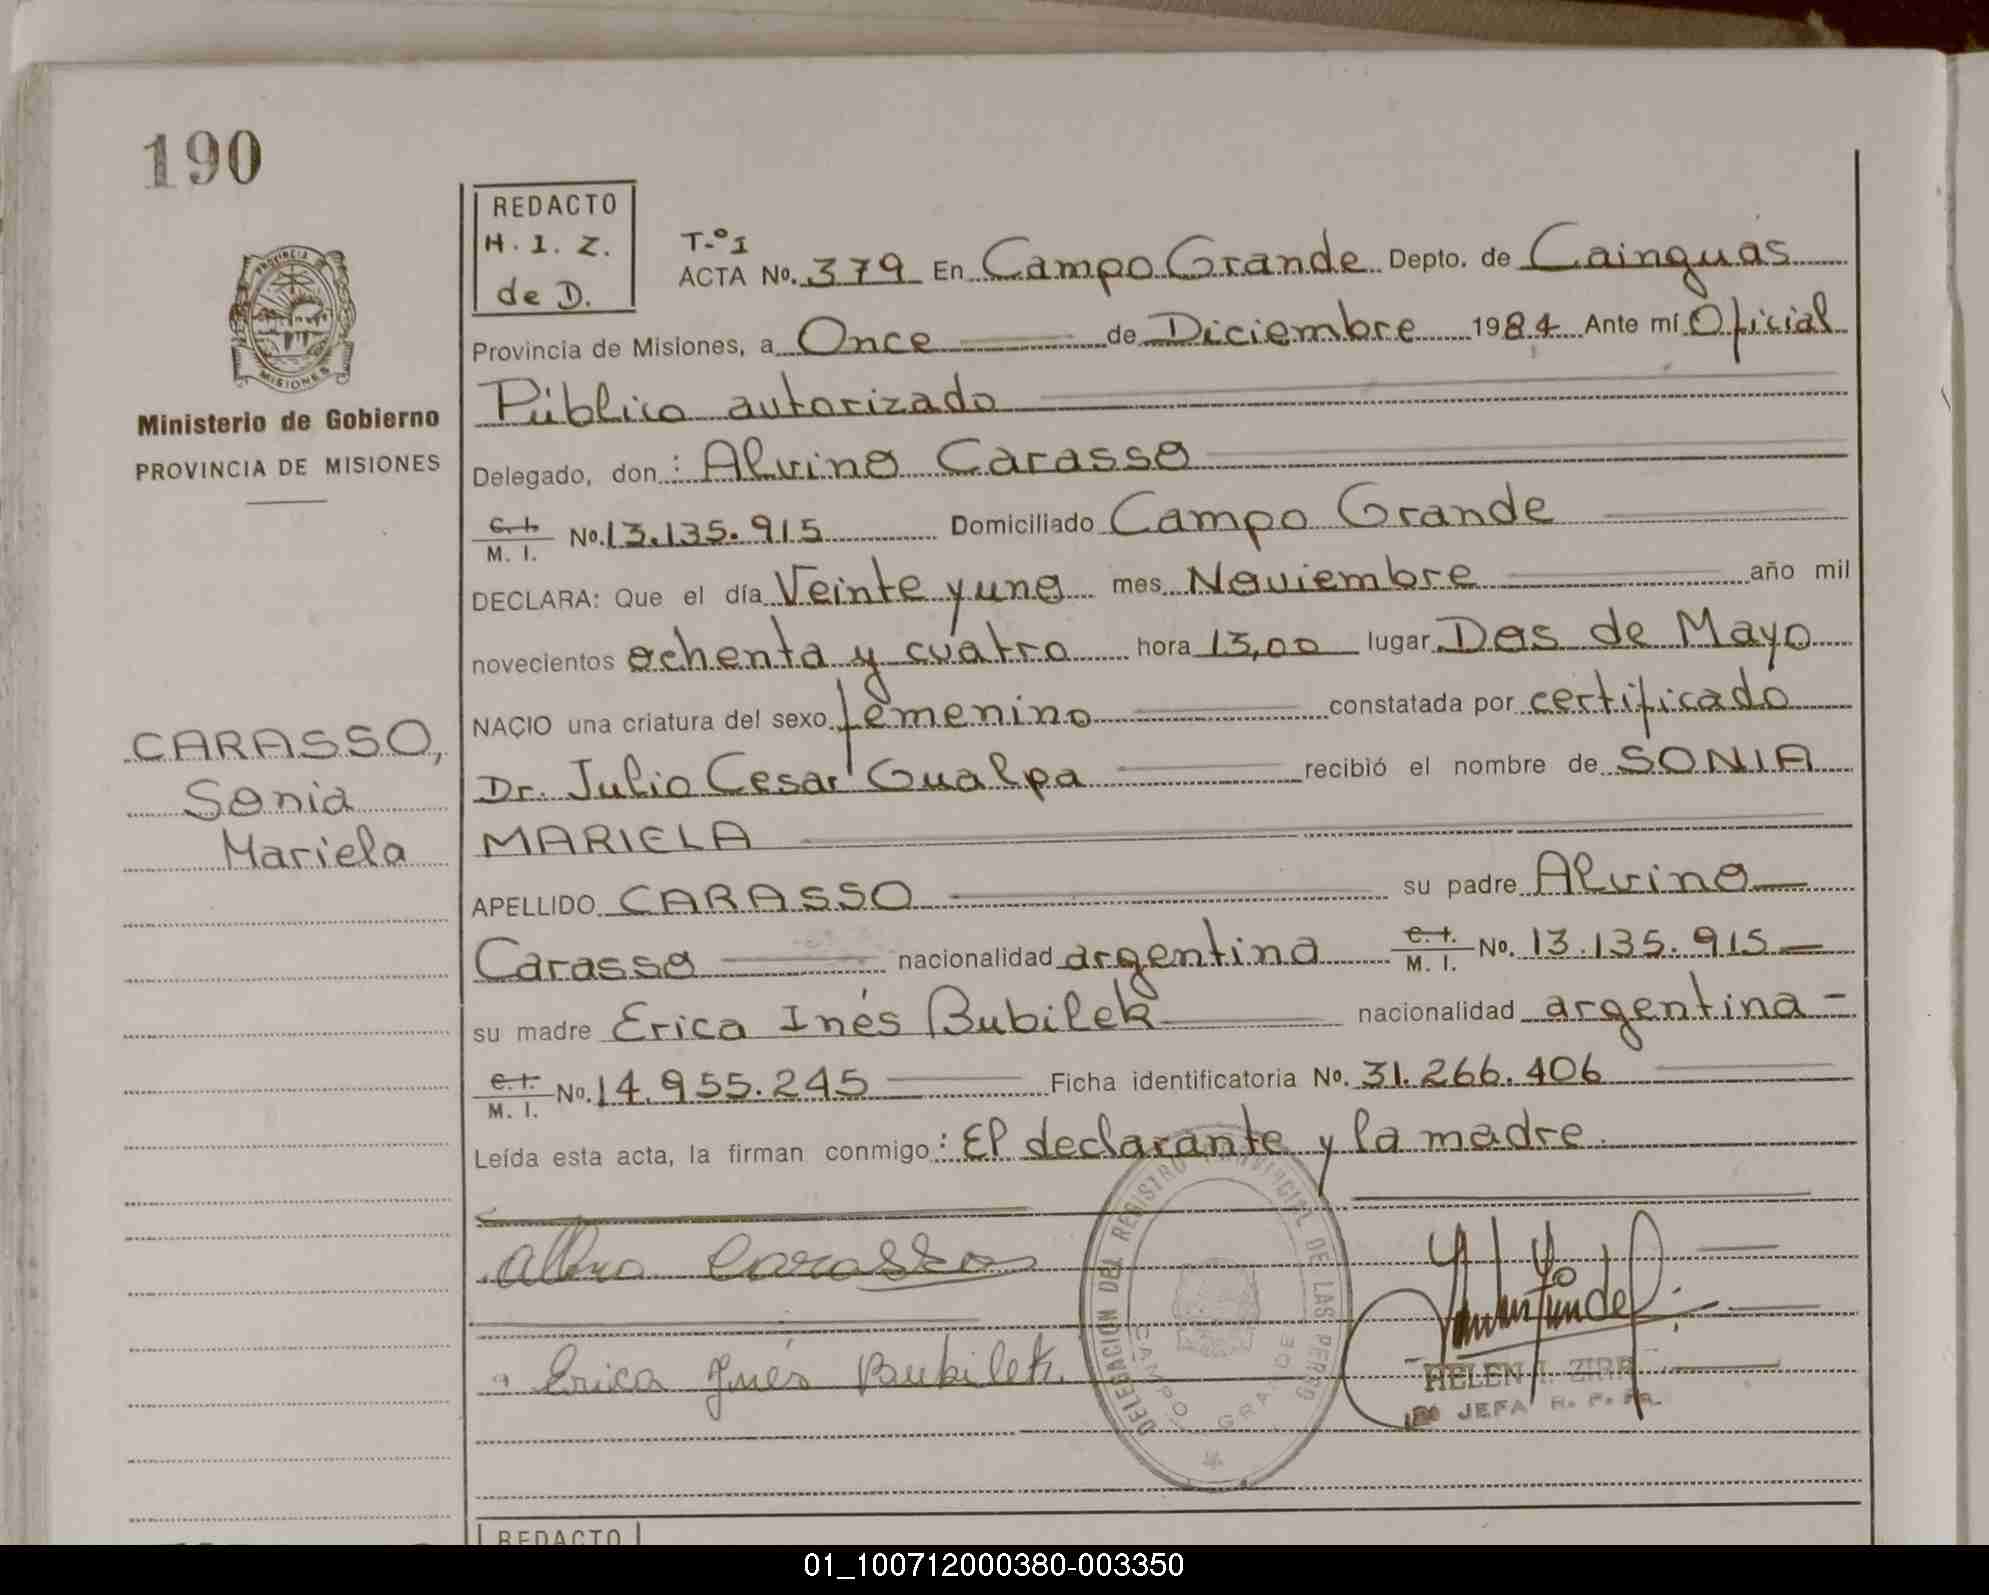 190
REDACTO
H. I. Z.
de D.
T.º I
ACTA No. 379 En Campo Grande Depto. de Cainguás
Provincia de Misiones, a Once de Diciembre 1984 Ante mí Oficial
Público autorizado
Delegado, don : Alvino Carasso
C. I.
M. I. No. 13.135.915 Domiciliado Campo Grande
DECLARA: Que el día Veinte y uno mes Noviembre año mil
novecientos ochenta y cuatro hora 13,00 lugar Dos de Mayo
NACIO una criatura del sexo femenino constatada por certificado
Dr. Julio Cesar Gualpa recibió el nombre de SONIA
MARIELA
APELLIDO CARASSO su padre Alvino
Carasso nacionalidad argentina C. I. M. I. No. 13.135.915
su madre Erica Inés Bubilek nacionalidad argentina -
C. I.
M. I. No. 14.955.245 Ficha identificatoria No. 31.266.406
Leída esta acta, la firman conmigo : El declarante y la madre.
Carasso
Erica Inés Bubilek
DELEGACION DEL REGISTRO PROVINCIAL DE LAS PERS
CAMPO GRANDE
HELEN I. ZIRR
JEFA R. P. PR.
PROVINCIA
MISIONES
Ministerio de Gobierno
PROVINCIA DE MISIONES
CARASSO,
Sonia
Mariela
REDACTO
01_100712000380-003350